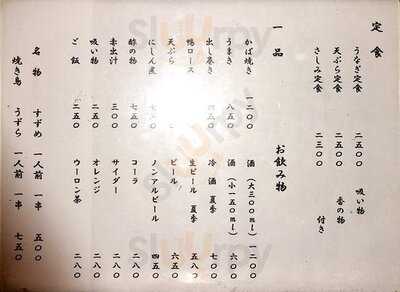 定食
うなぎ定食 二五〇〇
天ぷら定食 二五〇〇
さしみ定食 二三〇〇
吸い物
香の物
付き
一品
かば焼き 一二〇〇
うまき 八五〇
出し巻き 四五〇
鴨ロース
天ぷら
にしん煮
酢の物 七五〇
赤出汁 三〇〇
吸い物 二五〇
ご飯 二五〇
お飲み物
酒(大三〇〇ml) 一二〇〇
酒(小一五〇ml) 六〇〇
冷酒 夏季 七〇〇
生ビール 夏季 五八〇
ビール 六五〇
ノンアルビール 四五〇
コーラ 二八〇
サイダー 二八〇
オレンジ 二八〇
ウーロン茶 二八〇
名物 すずめ 一人前 一串 五〇〇
焼き鳥 うずら 一人前 一串 七五〇
Sluurpy